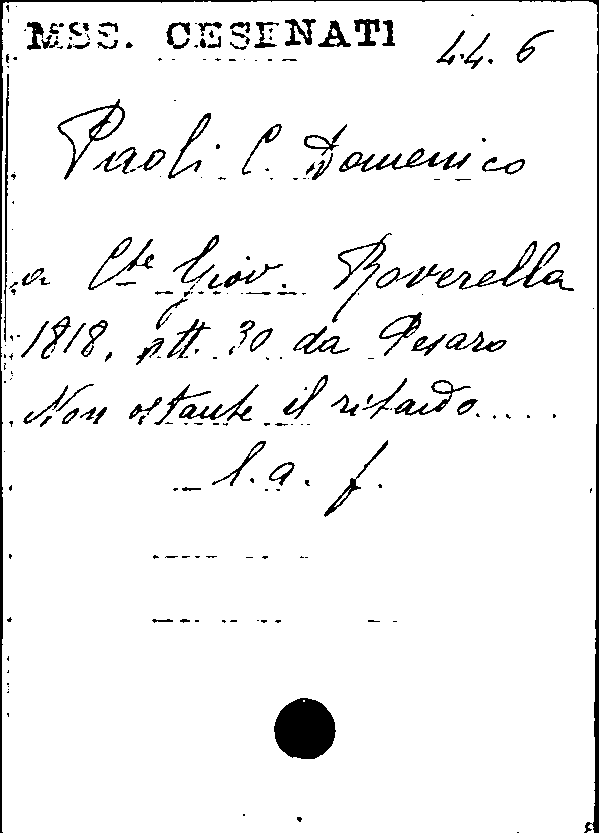 MSS. CESENATI 44.6
Paoli C. Domenico
a Cte Giov. Roverella
1818, ott. 30 da Pesaro
Non ostante il ritardo.....
l. a. f.